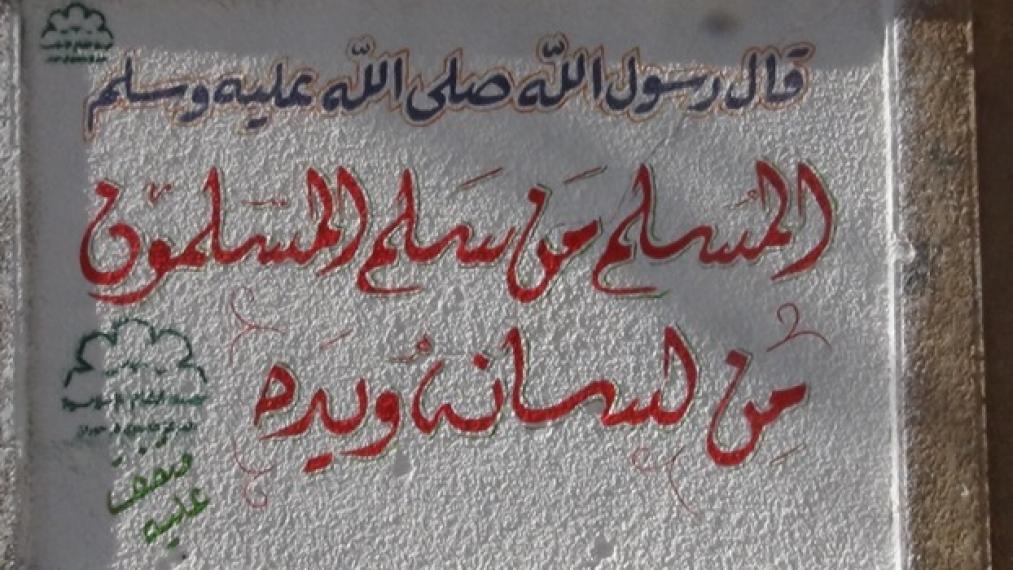 قال رسول الله صلى الله عليه وسلم
المسلم من سلم المسلمون
من لسانه ويده
متفق
عليه